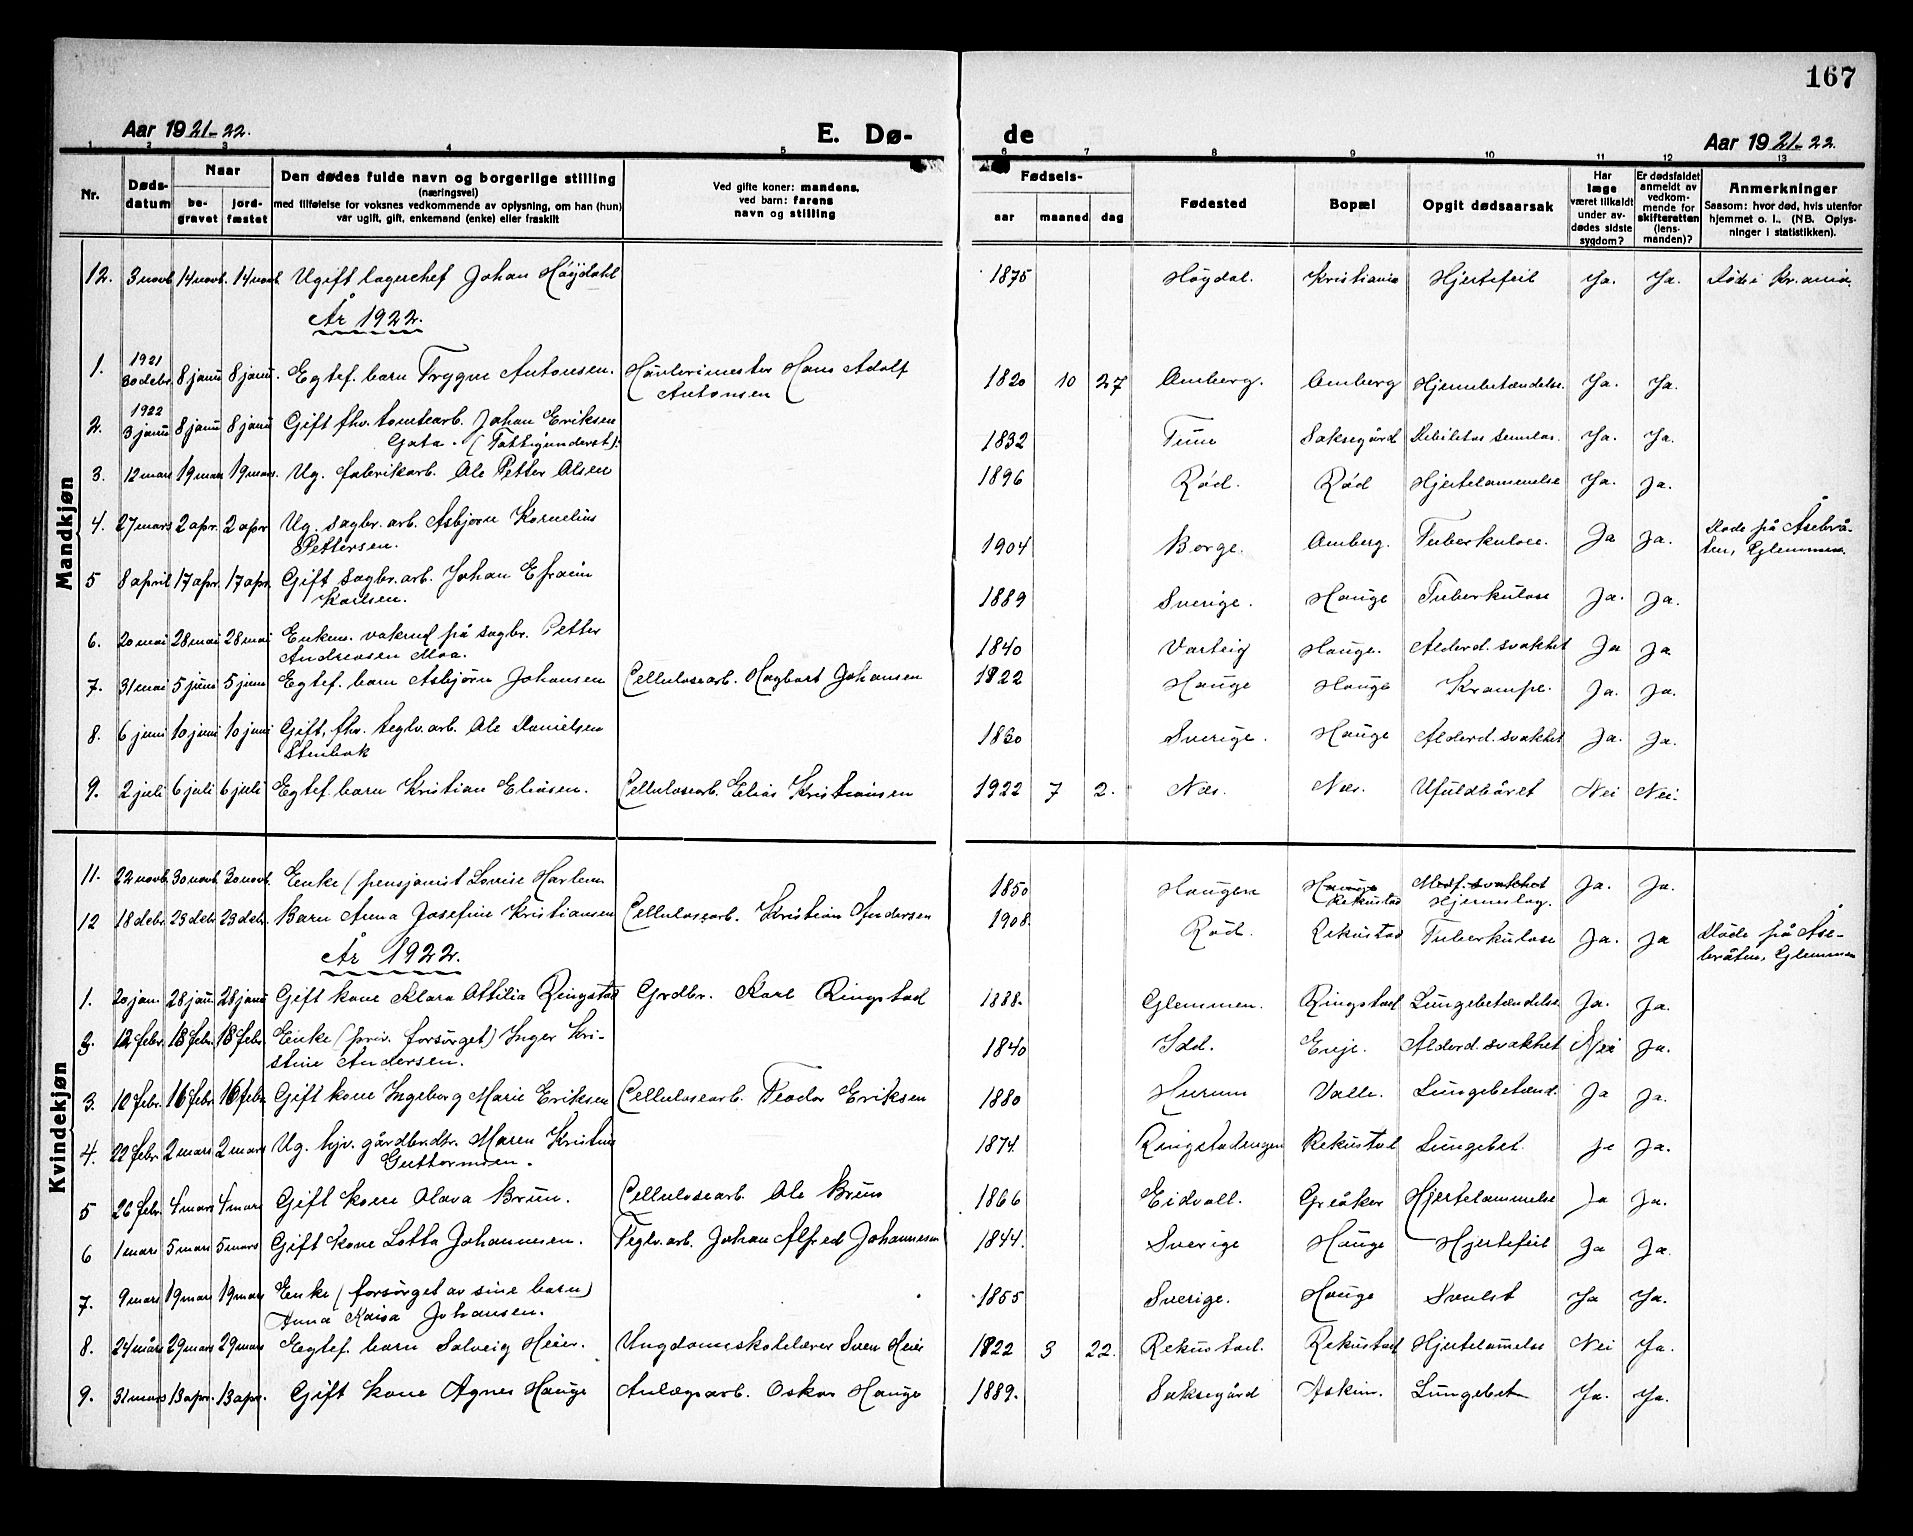 167
Aar 1921-22. E. Dø- de Aar 1921-22.
1 2 3 4 5 6 7 8 9 10 11 12 13
Nr. Døds-datum Naar be-gravet jord-fæstet Den dødes fulde navn og borgerlige stilling (næringsvei) med tilføielse for voksnes vedkommende av oplysning, om han (hun) var ugift, gift, enkemand (enke) eller fraskilt Ved gifte koner: mandens, ved barn: farens navn og stilling Fødsels- aar maaned dag Fødested Bopæl Opgit dødsaarsak Har læge været tilkaldt under av-dødes sidste sygdom? Er dødsfaldet anmeldt av vedkom-mende for skifteretten (lens-manden)? Anmerkninger Saasom: hvor død, hvis utenfor hjemmet o. l.. (NB. Oplys-ninger i statistikken).
Mandkjøn
12. 3 novb. 14 novb. 14 novb. Ugift lagerchef Johan Høydahl 1875 Høydal. Kristiania Hjertefeil Ja. Ja. Død i Kr.ania.
År 1922.
1. 1921 30 debr. 8 janu 8 janu. Egtef. barn Trygve Antonsen. Høvlerimester Hans Adolf Antonsen 1820 10 27 Omberg. Omberg Hjernebetændelse Ja. Ja.
2. 1922 3 janu 8 janu 8 janu Gift fhv. tomtearb. Johan Eriksen Gata. (Fattigunderst). 1832 Tune Saksegård Debilitas senilas. Ja. Ja.
3. 12 mars 19 mars 19 mars. Ug. fabrikarb. Ole Petter Olsen 1896 Rød. Rød Hjertelammelse Ja. Ja.
4. 27 mars 2 apr. 2 apr. Ug. sagbr. arb. Asbjørn Kornelius Pettersen. 1904 Borge. Omberg. Tuberkulose. Ja Ja. Døde på Åsebrå-ten, Glemmen.
5 8 april 17 apr. 17 apr. Gift sagbr. arb. Johan Efraim Karlsen. 1889 Sverige. Hauge Tuberkulose Ja. Ja.
6. 20 mai 28 mai 28 mai Enkem. vakmd på sagbr. Petter Andreasen Moa. 1840 Varteig Hauge. Alderd. svakhet Ja Ja
7. 31 mai 5 juni 5 juni Egtef. barn Asbjørn Johansen Cellulosearb. Hagbart Johansen 1822 Hauge Hauge Krampe. Ja. Ja.
8. 6 juni 10 juni 10 juni Gift, fhv. teglv. arb. Ole Danielsen Stenbæk 1860 Sverige. Hauge Alderd. svakhet Ja. Ja.
9. 2 juli 6 juli 6 juli Egtef. barn Kristian Eliasen. Cellulosearb. Elias Kristiansen 1922 7 2. Næs. Næs. Ufuldbåret Nei Nei.
Kvindekjøn
11. 22 novb. 30 novb. 30 novb. Enke (pensjonist Lovise Harlem 1850 Haugen Hauge Rekustad Medf. svakhet Hjerneslag. Ja. Ja.
12 18 debr. 23 debr. 23 debr. Barn Anna Josefine Kristiansen Cellulosearb. Kristian Andersen 1908. Rød. Rekustad Tuberkulose Ja. Ja Døde på Åse-bråten, Glemmen
År 1922.
1. 20 jan. 28 janu. 28 janu Gift kone Klara Ottilia Ringstad Grdbr. Karl Ringstad 1888. Glemmen. Ringstad Lungebetændelse Ja. Ja.
2. 12 febr. 18 febr. 18 febr. Enke (priv. forsørget) Inger Kri-stine Andersen. 1840 Idd. Enje. Alderd. svakhet Nei Ja.
3. 10 febr. 16 febr 16 febr. Gift kone Ingeborg Marie Eriksen Cellulosearb. Teodor Eriksen 1880 Hurum Valle. Lungebetænd. Ja Ja.
4. 22 febr. 2 mars 2 mars Ug. hjv. gårdbr.dtr. Maren Kristine Guttormsen. 1874. Ringstadengen Rekustad Lungebet. Ja Ja.
5 26 febr. 4 mars 4 mars Gift kone Olava Bruun. Cellulosearb. Ole Bruun 1866 Eidvoll. Greåker Hjertelammelse Ja Ja.
6 1 mars 5 mars 5 mars Gift kone Lotta Johannesen. Teglv.arb. Johan Alfred Johannesen 1844. Sverige Hauge Hjertefeil Ja Ja.
7. 9 mars 19 mars 19 mars Enke (forsørget av sine barn) Anna Kaisa Johansen. 1855 Sverige. Hauge Svulst Ja Ja.
8. 24 mårs 29 mars 29 mars Egtef. barn Solveig Heier. Ungdomsskolelærer Sven Heier 1822 3 22. Rekustad. Rekustad Hjertelamelse Nei Ja.
9. 31 mars 13 apr. 13 apr. Gift kone Agnes Hauge Anlægsarb. Oskar Hauge 1889. Saksegård Askim. Lungebet Ja. Ja.